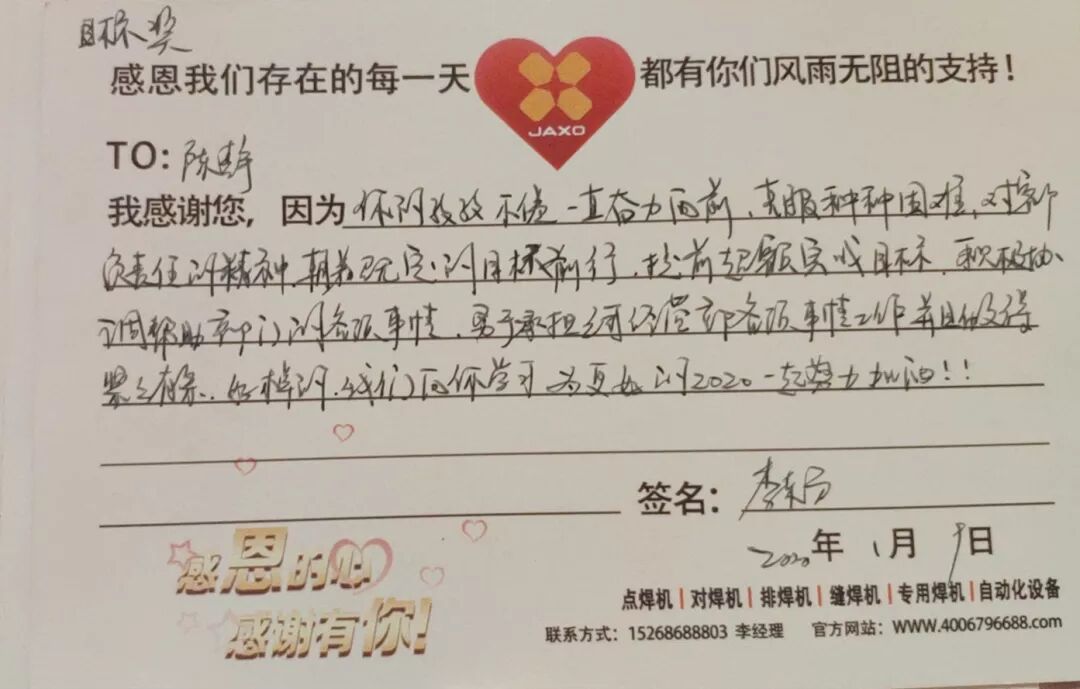 目标奖
感恩我们存在的每一天 JAXO 都有你们风雨无阻的支持！
TO: 陈静
我感谢您，因为 你的孜孜不倦一直奋力向前、克服种种困难、对部
负责任的精神、朝着既定的目标前行、提前超额完成目标、积极协
调帮助部门的各项事情、勇于承担经营部各项事情工作并且做得
紧之有条.、好样的、我们向你学习 为更好的2020一起努力加油！！
签名：
2020年1月9日
感恩的心
感谢有你！
点焊机|对焊机|排焊机|缝焊机|专用焊机|自动化设备
联系方式：15268688803 李经理 官方网站：WWW.4006796688.com